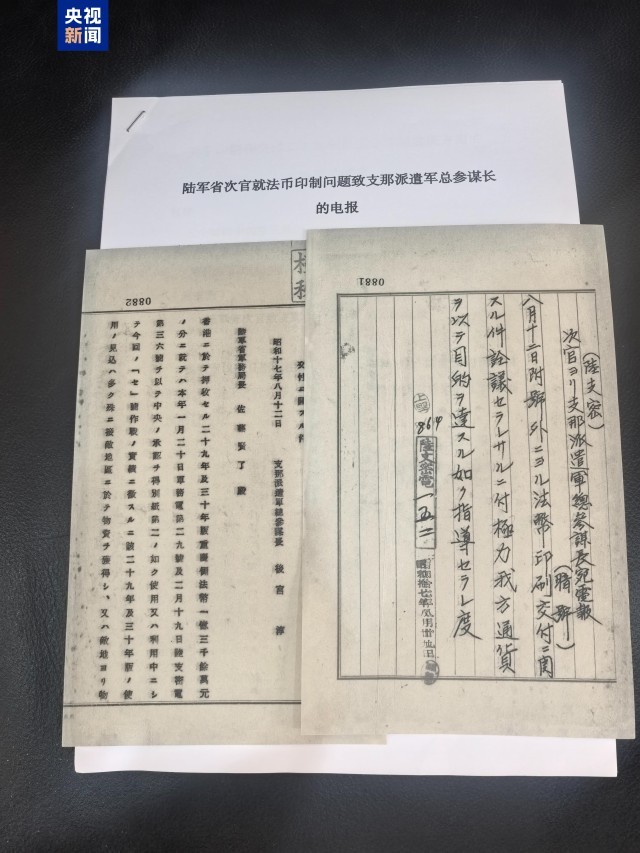 央视
新闻
陆军省次官就法币印制问题致支那派遣军总参谋长
的电报
0881
(陸支密)
次官ヨリ支那派遣軍總参謀長宛電報
(暗號)
八月十二日附號外ニヨル法幣印刷交付ニ関
スル件詮議セラレサルニ付極力我方通貨
ヲ以テ目的ヲ達スル如ク指導セラレ度
864
陸支密電一五二
昭和拾七年八月廿九日
0882
交付ニ關スル件
昭和十七年八月十二日 支那派遣軍總參謀長 後宮 淳
陸軍省軍務局長 佐藤賢了殿
香港ニ於テ押收セル二十九年及三十年版重慶側法幣一億三千餘萬元
ノ分ニ就テハ本年一月二十日軍務電第二九號及二月十九日陸支密電
第三六號ヲ以テ中央ノ承認ヲ得別紙第二ノ如ク使用又ハ利用中ニシ
テ今回ノ「セ」號作戰ノ實績ニ徵スルニ該二十九年及三十年版ノ使
用ノ見込ハ多ク殊ニ敵地區ニ於テ物資ヲ獲得シ、又ハ敵地ヨリ物